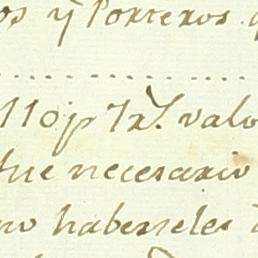 os y Porteros
110 p 7 rs. valo
fue necesario
no haberseles